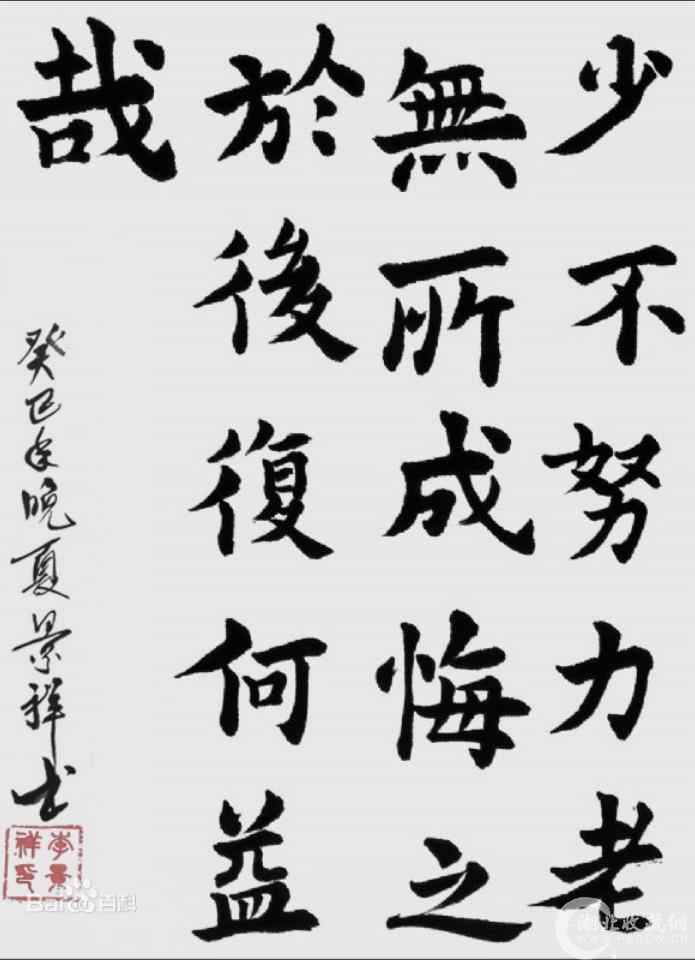 少不努力老
無所成悔之
於後復何益
哉
癸巳年晚夏景祥书
李景祥印
Baidu百科
湖北收藏网